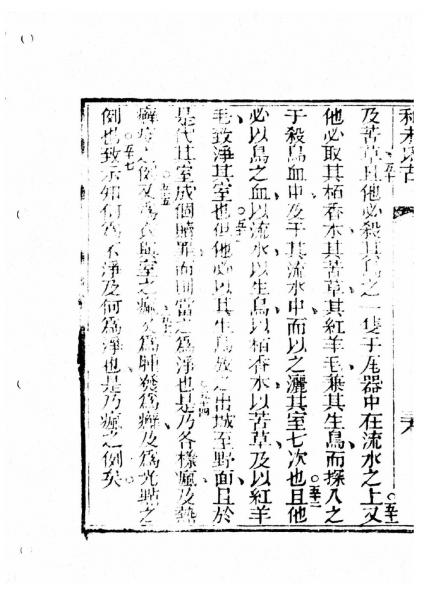 利未氏古
及苦草○五十且他必殺其鳥之一隻于瓦器中在流水之上○五十一又
他必取其栢香木其苦草其紅羊毛兼其生鳥而探入之
于殺鳥血中及于其流水中而以之灑其室七次也○五十二且他
必以鳥之血以流水以生鳥以栢香木以苦草及以紅羊
毛致淨其室也○五十三但他必以其生鳥放之出城至野面且於
是代其室成個贖罪而則當之爲淨也○五十四是乃各樣瘋及熱
癬症之例○五十五又爲衣與室之瘋及爲肿發爲癬及爲光點之
例也○五十七致示知何爲不淨及何爲淨也是乃瘋之例矣